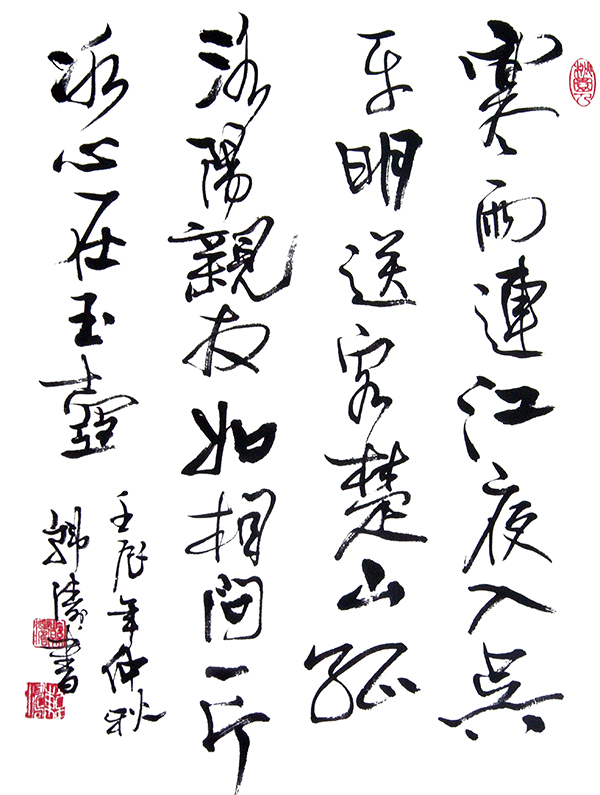 寒雨連江夜入吳
平明送客楚山孤
洛陽親友如相問一片
冰心在玉壺
壬辰年仲秋
韓濤書